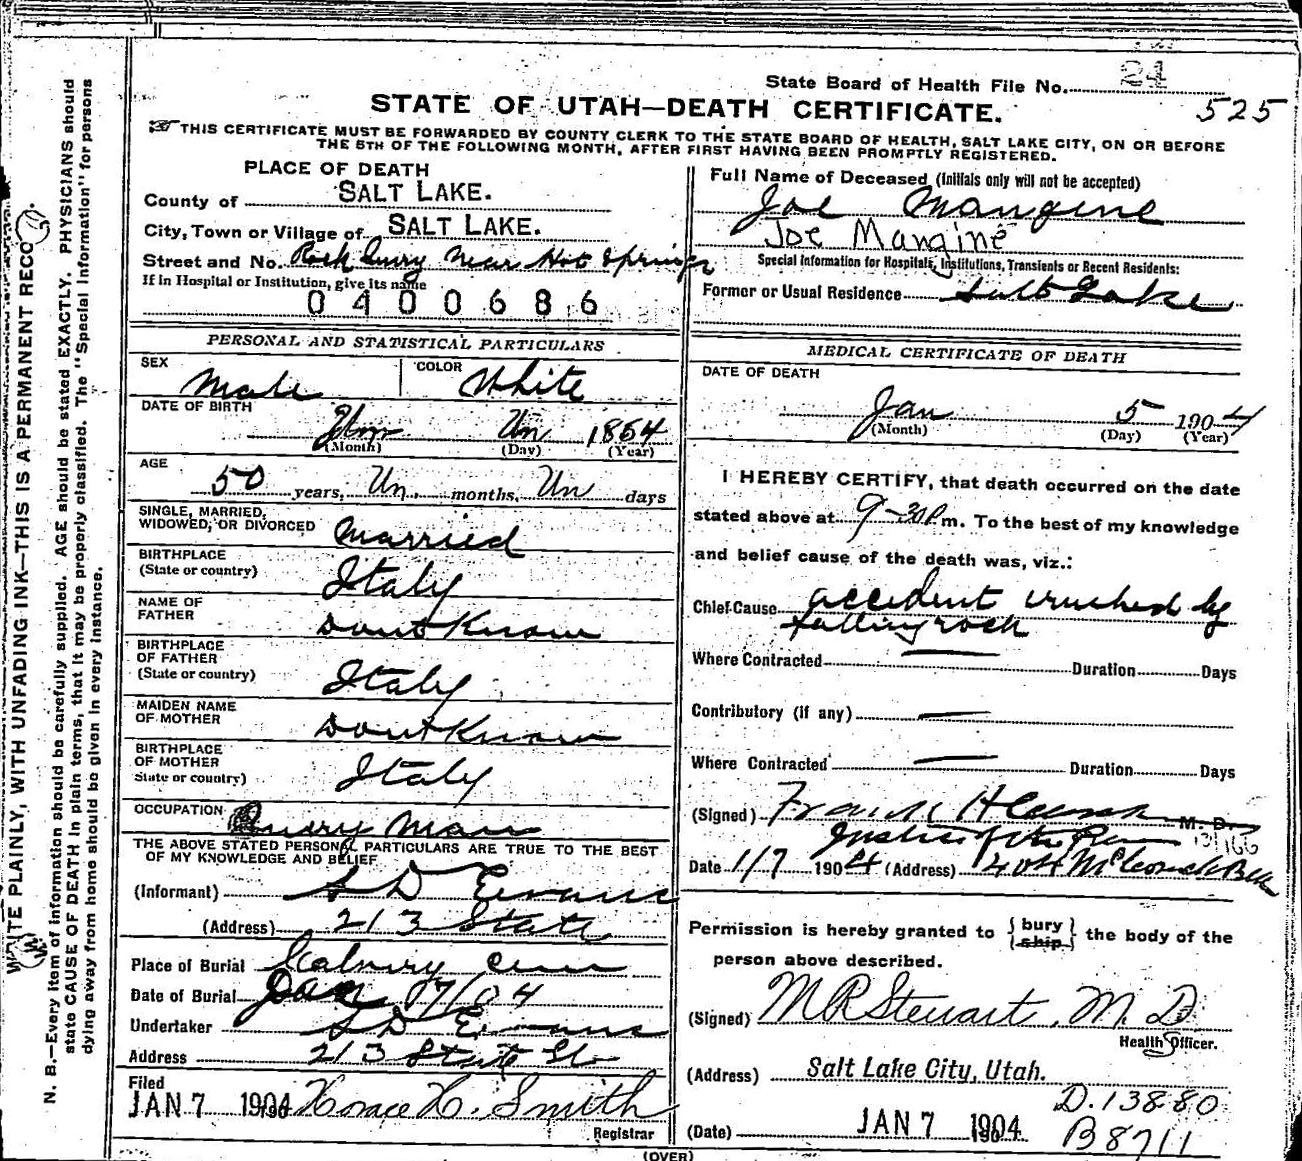 State Board of Health File No. 21
525
STATE OF UTAH—DEATH CERTIFICATE.
THIS CERTIFICATE MUST BE FORWARDED BY COUNTY CLERK TO THE STATE BOARD OF HEALTH, SALT LAKE CITY, ON OR BEFORE
THE 5TH OF THE FOLLOWING MONTH, AFTER FIRST HAVING BEEN PROMPTLY REGISTERED.
PLACE OF DEATH
County of SALT LAKE.
City, Town or Village of SALT LAKE.
Street and No. Rock Qurry Near Hot Springs
If in Hospital or Institution, give its name
0400686
PERSONAL AND STATISTICAL PARTICULARS
SEX Male COLOR White
DATE OF BIRTH Un 1854
(Month) (Day) (Year)
AGE
50 years, Un. months, Un days
SINGLE, MARRIED,
WIDOWED, OR DIVORCED Married
BIRTHPLACE
(State or country) Italy
NAME OF
FATHER Dont Know
BIRTHPLACE
OF FATHER
(State or country) Italy
MAIDEN NAME
OF MOTHER Dont Know
BIRTHPLACE
OF MOTHER
State or country) Italy
OCCUPATION Qurry Man
THE ABOVE STATED PERSONAL PARTICULARS ARE TRUE TO THE BEST
OF MY KNOWLEDGE AND BELIEF
(Informant) S D Evans
(Address) 213 State
Place of Burial Calvary Cem
Date of Burial Jan 7/04
Undertaker S D Evans
Address 213 State St
Filed
JAN 7 1904 Horace H. Smith
Registrar
Full Name of Deceased (Initials only will not be accepted)
Joe Mangine
Joe Mangine
Special Information for Hospitals, Institutions, Transients or Recent Residents:
Former or Usual Residence Salt Lake
MEDICAL CERTIFICATE OF DEATH
DATE OF DEATH
Jan 5 1904
(Month) (Day) (Year)
I HEREBY CERTIFY, that death occurred on the date
stated above at 9-30 P m. To the best of my knowledge
and belief cause of the death was, viz.:
Chief Cause accident crushed by
falling rock
Where Contracted — Duration Days
Contributory (if any) —
Where Contracted — Duration Days
(Signed) Frank H M. D.
Justice of the Peace 131166
Date 1/7 1904 (Address) 404 McCornick Blk
Permission is hereby granted to {bury ship} the body of the
person above described.
(Signed) M R Stewart, M. D.
Health Officer.
(Address) Salt Lake City, Utah.
(Date) JAN 7 1904
D.13880
B8711
(OVER)
WRITE PLAINLY, WITH UNFADING INK—THIS IS A PERMANENT RECO
N. B.—Every item of information should be carefully supplied. AGE should be stated EXACTLY. PHYSICIANS should
state CAUSE OF DEATH in plain terms, that it may be properly classified. The "Special Information" for persons
dying away from home should be given in every instance.